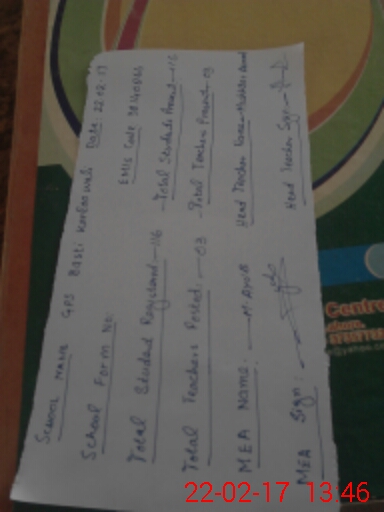 School Name GPS Basti Date: 22.02.17
School Form No: EMIS Code
Total Student Registered — 116 Total Students Present — 116
Total Teachers Posted: — 03 Total Teachers Present — 03
MEA Name: Head Teacher Name
MEA Sign: Head Teacher Sign
Centre
22-02-17 13:46